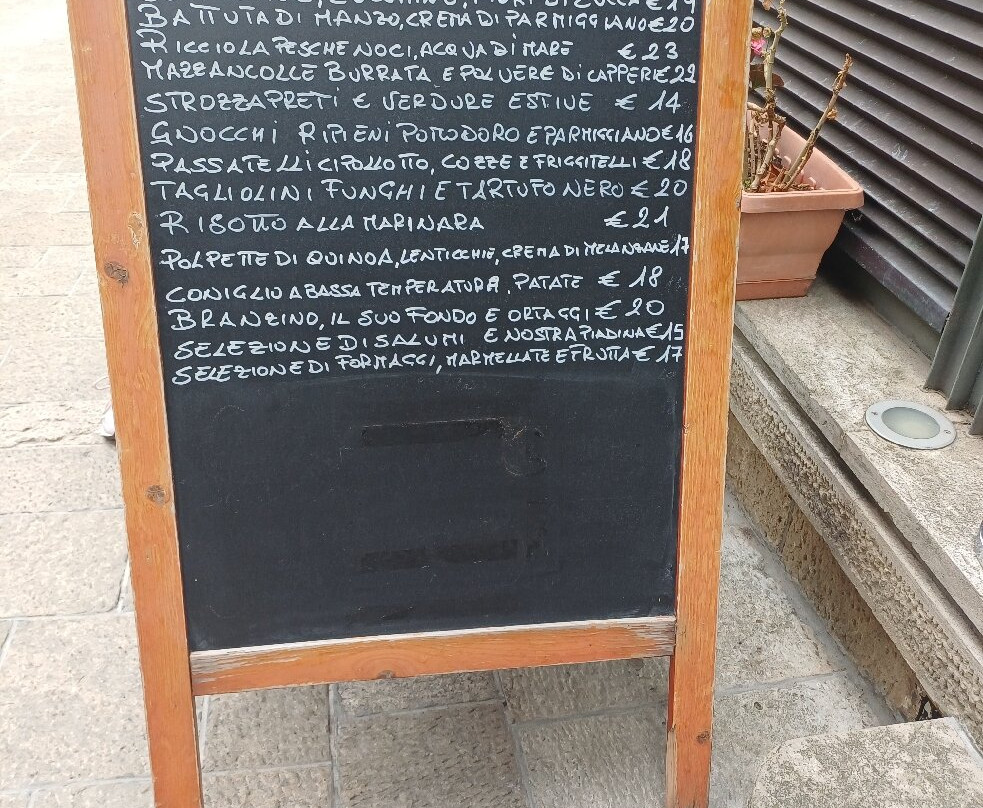 FIORI DI ZUCCA € 19
BATTUTA DI MANZO, CREMA DI PARMIGGIANO € 20
RICCIOLA PESCHE NOCI, ACQUA DI MARE € 23
MAZZANCOLLE BURRATA E POLVERE DI CAPPERI € 22
STROZZAPRETI E VERDURE ESTIVE € 14
GNOCCHI RIPIENI POMODORO E PARMIGGIANO € 16
PASSATELLI CIPOLLOTTO, COZZE E FRIGGITELLI € 18
TAGLIOLINI FUNGHI E TARTUFO NERO € 20
RISOTTO ALLA MARINARA € 21
POLPETTE DI QUINOA, LENTICCHIE, CREMA DI MELANZANE 17
CONIGLIO A BASSA TEMPERATURA, PATATE € 18
BRANZINO, IL SUO FONDO E ORTAGGI € 20
SELEZIONE DI SALUMI E NOSTRA PIADINA € 15
SELEZIONE DI FORMAGGI, MARMELLATE E FRUTTA € 17